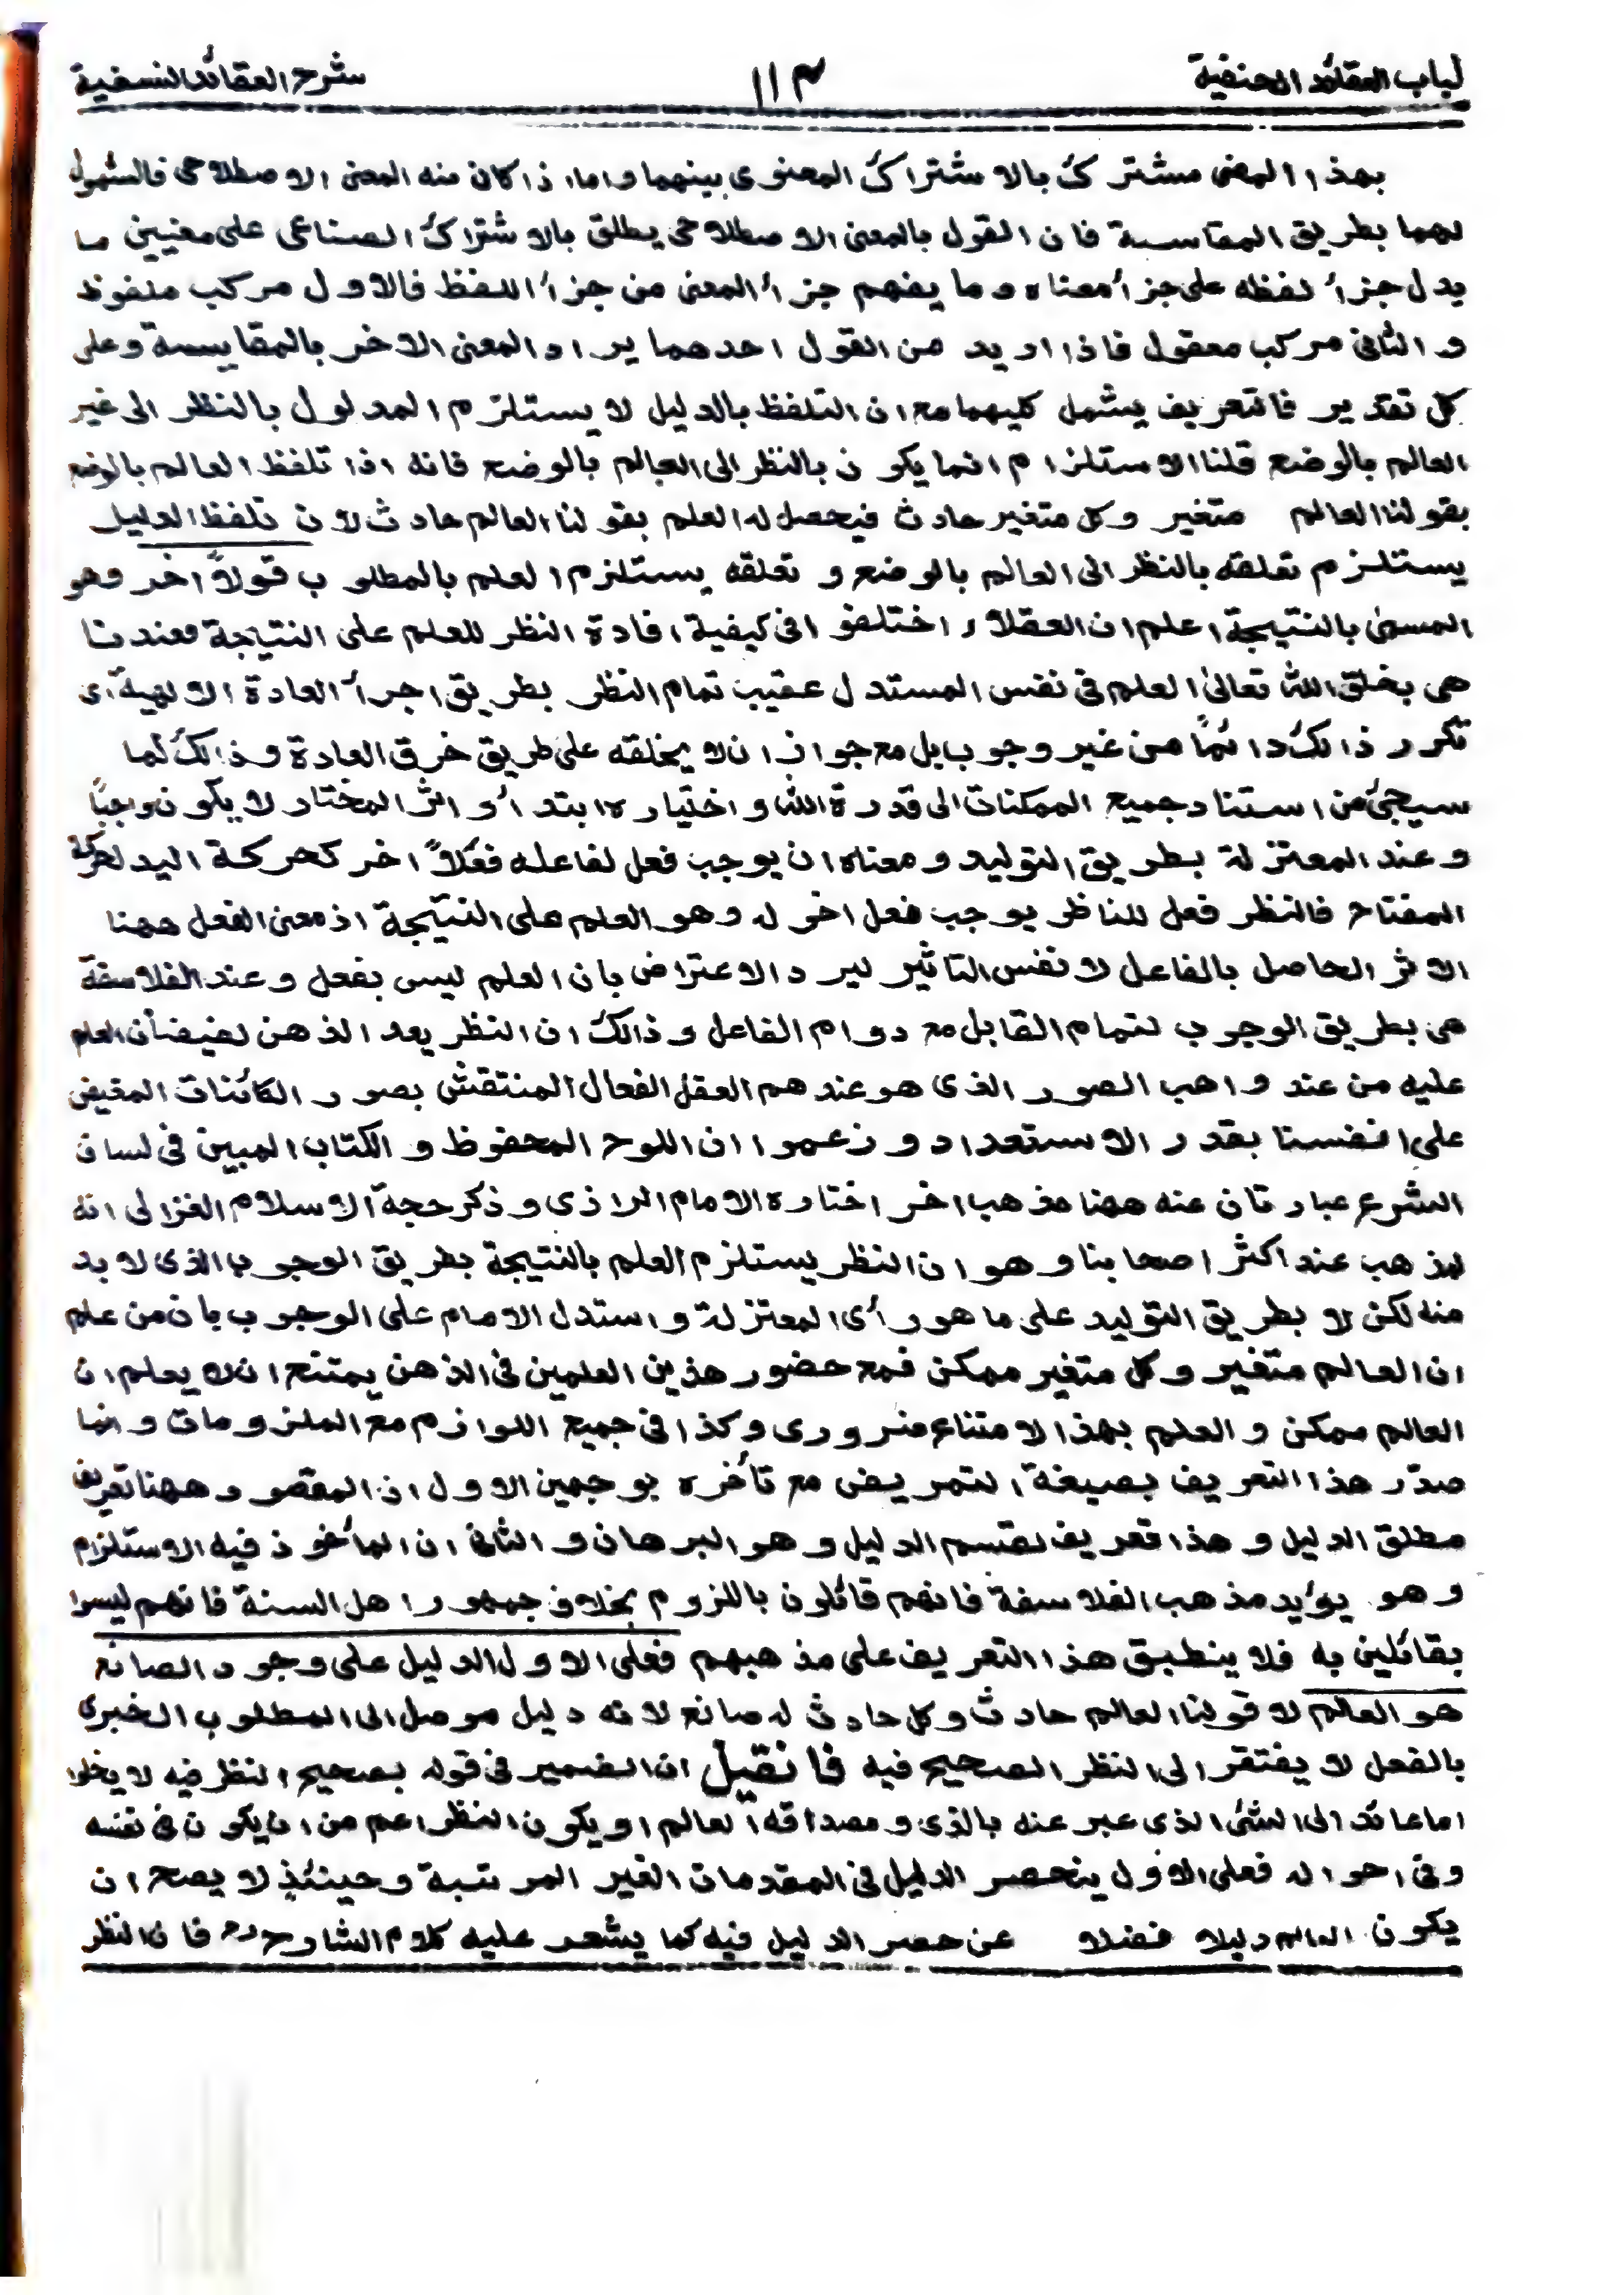 لباب العقائد الحنفية ١١٣ شرح العقائد النسفية
بهذا المعنى مشترك بالاشتراك المعنوى بينهما واما اذا كان منه المعنى الاصطلاحى فالشمول
لهما بطريق المقاسبة فان القول بالمعنى الاصطلاحى يطلق بالاشتراك الصناعى على معنيين ما
يدل جزأ لفظه على جزأ معناه وما يفهم جزأ المعنى من جزأ اللفظ فالاول مركب ملفوظ
والثانى مركب معقول فاذا اريد من القول احدهما يراد المعنى الاخر بالمقايسة وعلى
كل تقدير فالتعريف يشمل كليهما مع ان التلفظ بالدليل لا يستلزم المدلول بالنظر الى غير
العالم بالوضع قلنا الاستلزام انما يكون بالنظر الى العالم بالوضع فانه اذا تلفظ العالم بالوضع
بقولنا العالم متغير وكل متغير حادث فيحصل له العلم بقولنا العالم حادث لان تلفظ الدليل
يستلزم تعلقه بالنظر الى العالم بالوضع و تعلقه يستلزم العلم بالمطلوب قولاً اخر وهو
المسمى بالنتيجة اعلم ان العقلاء اختلفوا فى كيفية افادة النظر للعلم على النتيجة فعندنا
هى بخلق الله تعالىٰ العلم فى نفس المستدل عقيب تمام النظر بطريق اجرأ العادة الالهية اى
تكرر ذالك دائماً من غير وجوب بل مع جواز ان لا يخلقه على طريق خرق العادة وذالك لما
سيجئ من استناد جميع الممكنات الى قدرة الله واختياره ابتدأ و اثر المختار لا يكون واجباً
وعند المعتزلة بطريق التوليد ومعناه ان يوجب فعل لفاعله فعلاً اخر كحركة اليد لحركة
المفتاح فالنظر فعل للناظر يوجب فعل اخر له وهو العلم على النتيجة اذ معنى الفعل ههنا
الاثر الحاصل بالفاعل لا نفس التاثير ليرد الاعتراض بان العلم ليس بفعل وعند الفلاسفة
هى بطريق الوجوب لتمام القابل مع دوام الفاعل وذالك ان النظر يعد الذهن لفيضان العلم
عليه من عند واهب الصور الذى هو عندهم العقل الفعال المنتقش بصور الكائنات المفيض
على انفسنا بقدر الاستعداد وزعموا ان اللوح المحفوظ والكتاب المبين فى لسان
الشرع عبارتان عنه ههنا مذهب اخر اختاره الامام الرازى وذكر حجة الاسلام الغزالى انه
لمذهب عند اكثر اصحابنا وهو ان النظر يستلزم العلم بالنتيجة بطريق الوجوب الذى لا بد
منه لكن لا بطريق التوليد على ما هو رأى المعتزلة واستدل الامام على الوجوب بان من علم
ان العالم متغير وكل متغير ممكن فمع حضور هذين العلمين فى الذهن يمتنع ان لا يعلم ان
العالم ممكن والعلم بهذا الامتناع ضرورى وكذا فى جميع اللوازم مع الملزومات وانما
صدّر هذا التعريف بصيغة التمريض مع تأخره بوجهين الاول ان المقصود ههنا تعريف
مطلق الدليل وهذا تعريف لقسم الدليل وهو البرهان والثانى ان المأخوذ فيه الاستلزام
وهو يؤيد مذهب الفلاسفة فانهم قائلون باللزوم بخلاف جمهور اهل السنة فانهم ليسوا
بقائلين به فلا ينطبق هذا التعريف على مذهبهم فعلى الاول الدليل على وجود الصانع
هو العالم لا قولنا العالم حادث وكل حادث له صانع لانه دليل موصل الى المطلوب الخبرى
بالفعل لا يفتقر الى النظر الصحيح فيه فان قيل ان الضمير فى قوله بصحيح النظر فيه لا يخلوا
اما عائد الى الشئ الذى عبر عنه بالذى ومصداقه العالم او يكون النظر اعم من ان يكون فى نفسه
وفى احواله فعلى الاول ينحصر الدليل فى المقدمات الغير المرتبة وحينئذٍ لا يصح ان
يكون العالم دليلا فضلا عن حصر الدليل فيه كما يشعر عليه كلام الشارح رح فان النظر